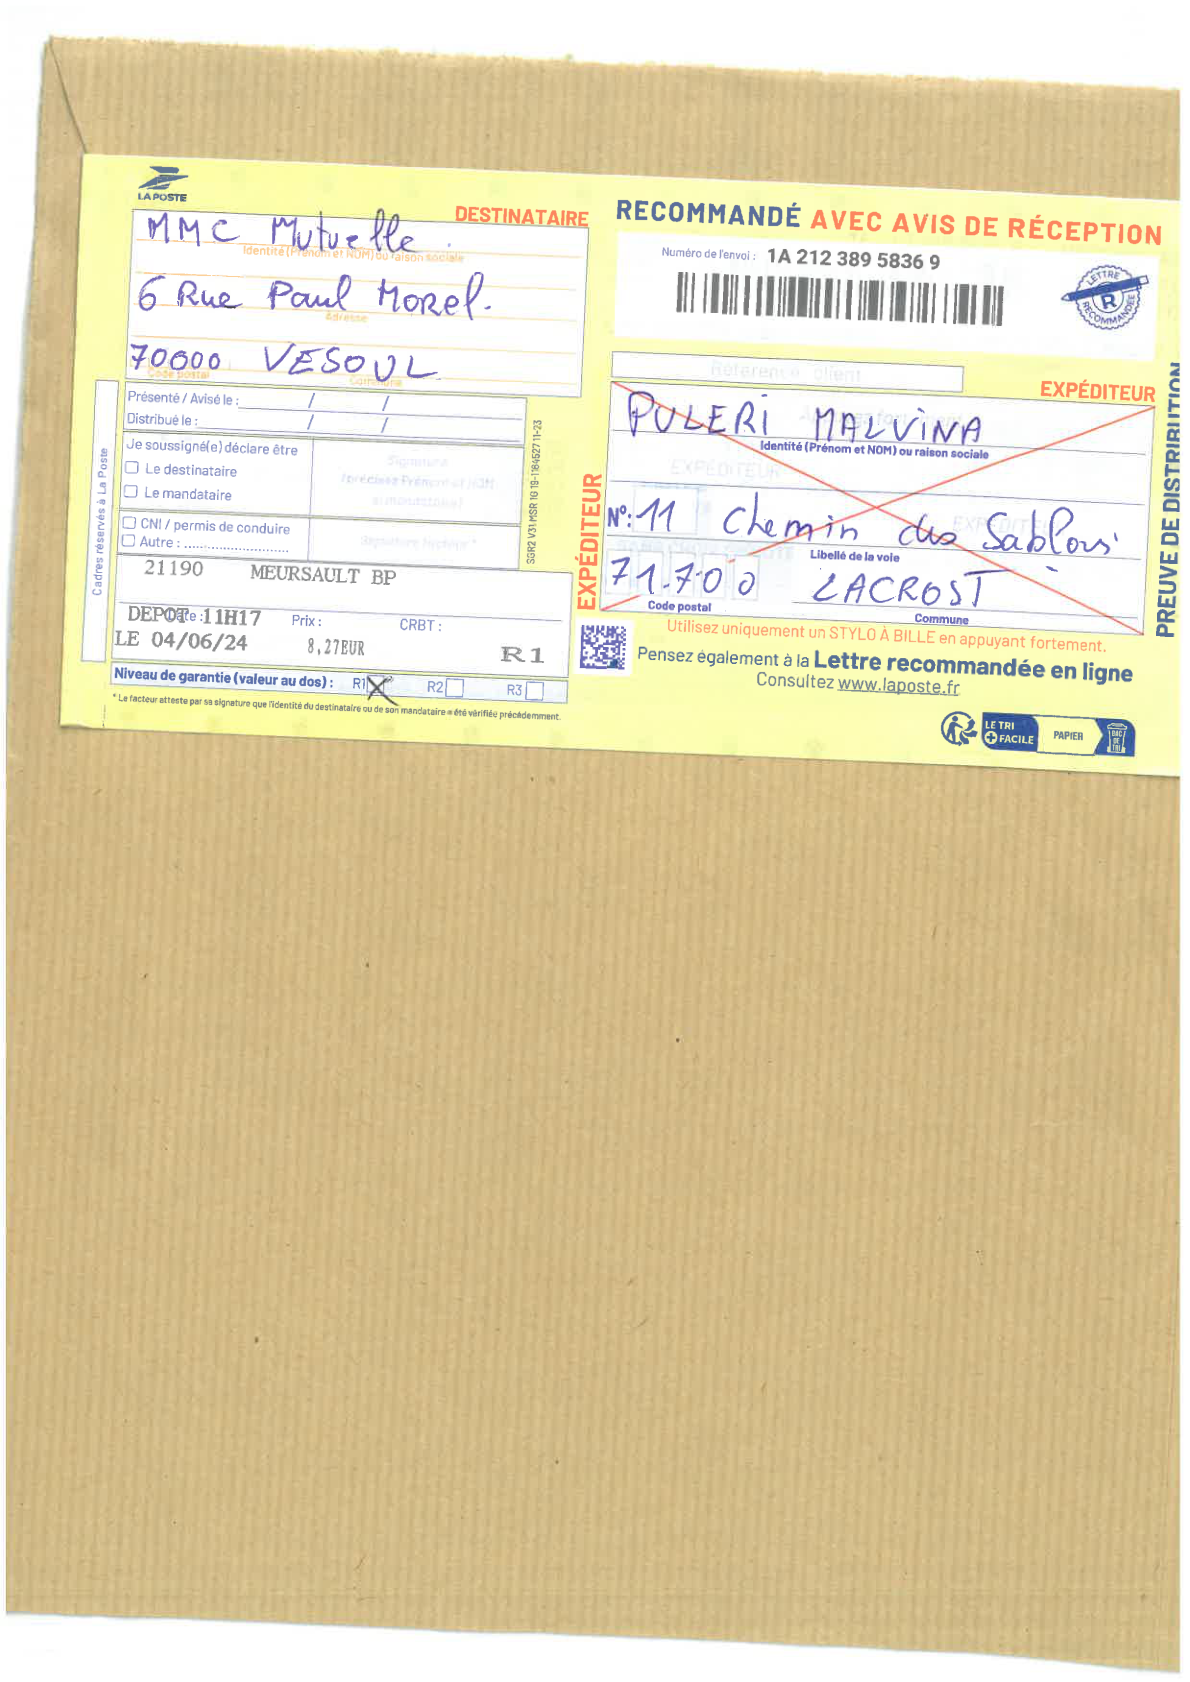 LA POSTE
DESTINATAIRE
MMC Mutuelle.
Identité (Prénom et NOM) ou raison sociale
6 Rue Paul Morel.
Adresse
70000 VESOUL
Code postal
Commune
Présenté / Avisé le : / /
Distribué le : / /
Je soussigné(e) déclare être
Le destinataire
Le mandataire
CNI / permis de conduire
Autre : ............................
Cadres réservés à La Poste
21190 MEURSAULT BP
DEPOT 11H17 Prix : CRBT :
LE 04/06/24 8,27EUR R1
Niveau de garantie (valeur au dos) : R1 X R2 R3
* Le facteur atteste par sa signature que l'identité du destinataire ou de son mandataire a été vérifiée précédemment.
RECOMMANDÉ AVEC AVIS DE RÉCEPTION
Numéro de l'envoi : 1A 212 389 5836 9
LETTRE RECOMMANDÉE
R
Référence client
EXPÉDITEUR
PULERI MALVINA
Identité (Prénom et NOM) ou raison sociale
N°: 11 Chemin des Sablons
Libellé de la voie
71700 LACROST
Code postal
Commune
EXPÉDITEUR
PREUVE DE DISTRIBUTION
Utilisez uniquement un STYLO À BILLE en appuyant fortement.
Pensez également à la Lettre recommandée en ligne
Consultez www.laposte.fr
LE TRI
+ FACILE
PAPIER
BAC DE TRI